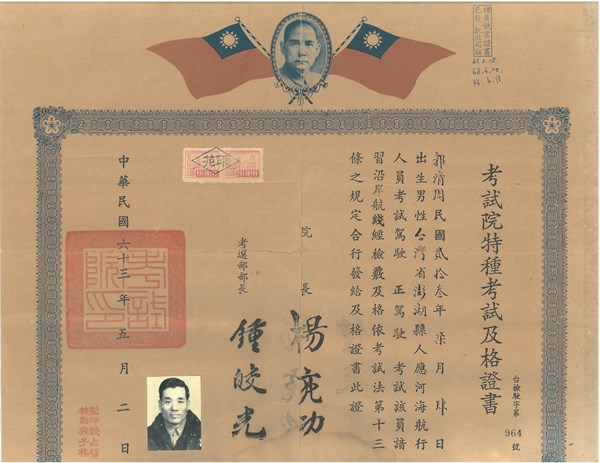 考試院特種考試及格證書
台檢駛字第
964
號
郭清周民國貳拾叁年柒月肆日
出生男性台灣省澎湖縣人應河海航行
人員考試駕駛 正駕駛 考試該員諳
習沿岸航綫經檢覈及格依考試法第十三
條之規定合行發給及格證書此證
院長
楊亮功
考選部部長
鍾皎光
中華民國六十三年五月二日
考試院印